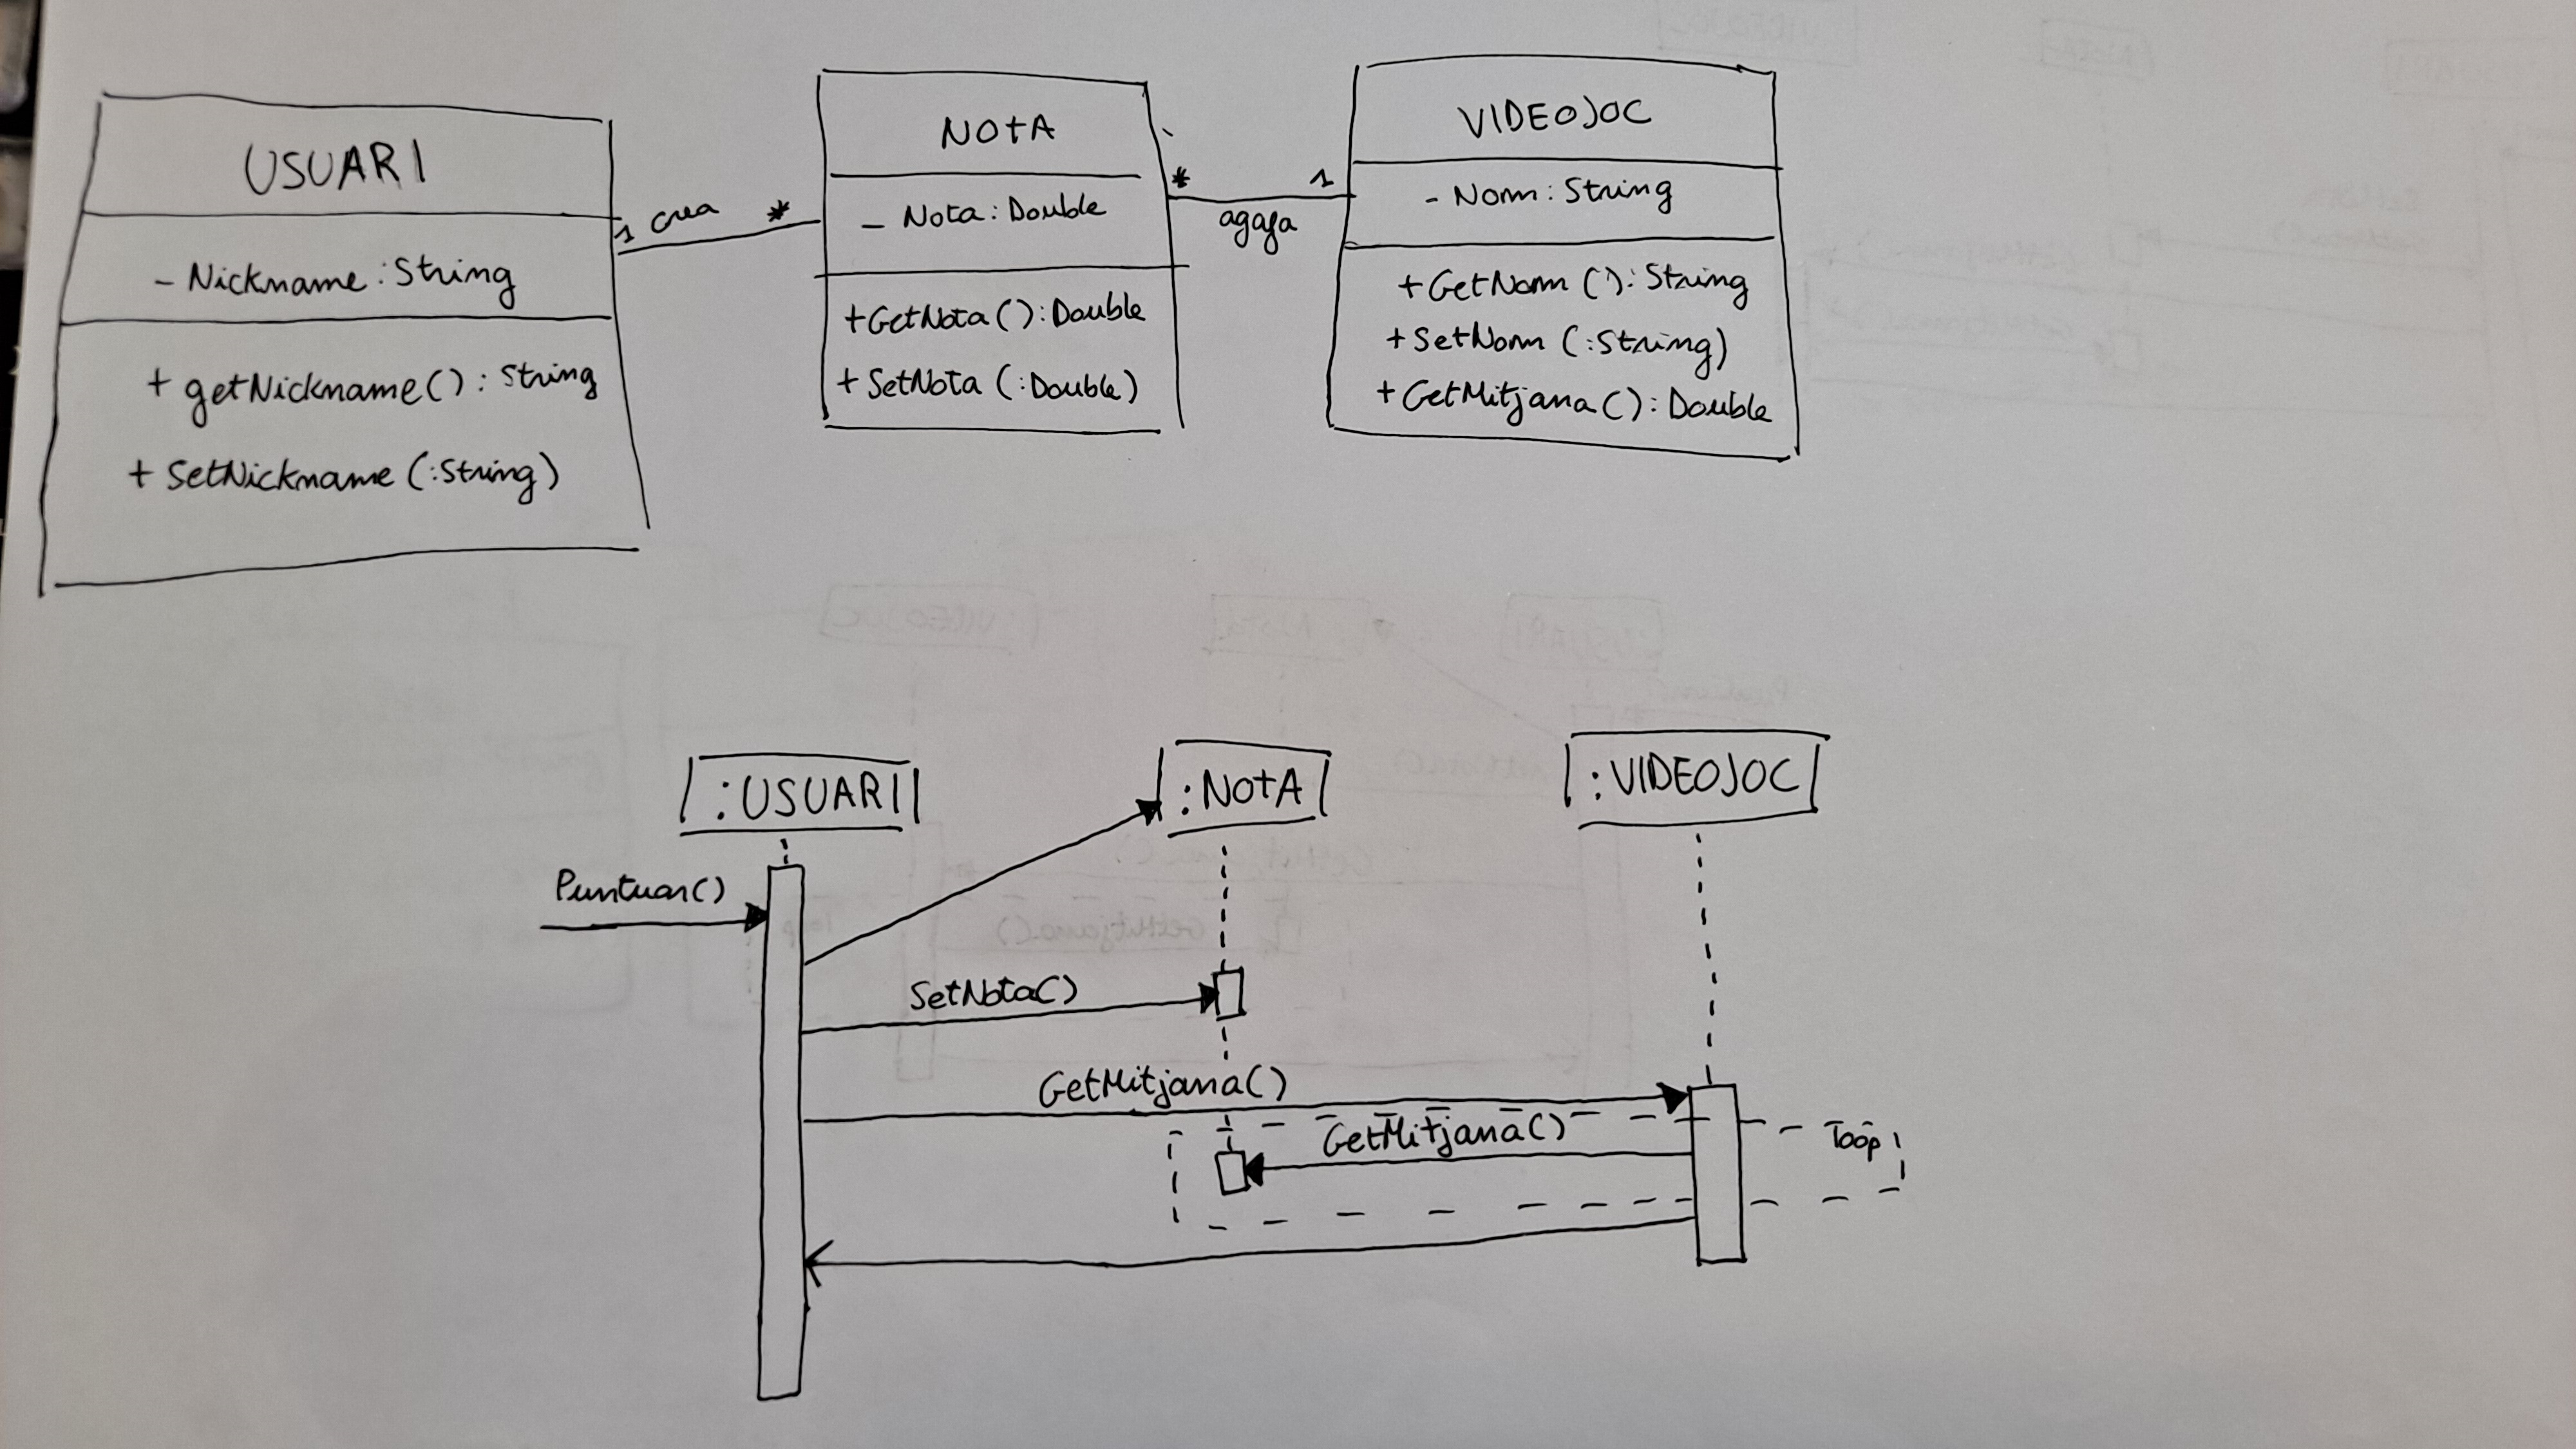 USUARI
- Nickname: String
+ getNickname(): String
+ SetNickname (:String)
1 crea *
NOtA
- Nota: Double
+GetNota(): Double
+ SetNota (:Double)
* 1
agafa
VIDEOJOC
- Nom: String
+GetNom (): String
+SetNom (:String)
+ GetMitjana(): Double
:USUARI
:NOtA
:VIDEOJOC
Puntuar()
SetNota()
GetMitjana()
GetMitjana()
loop